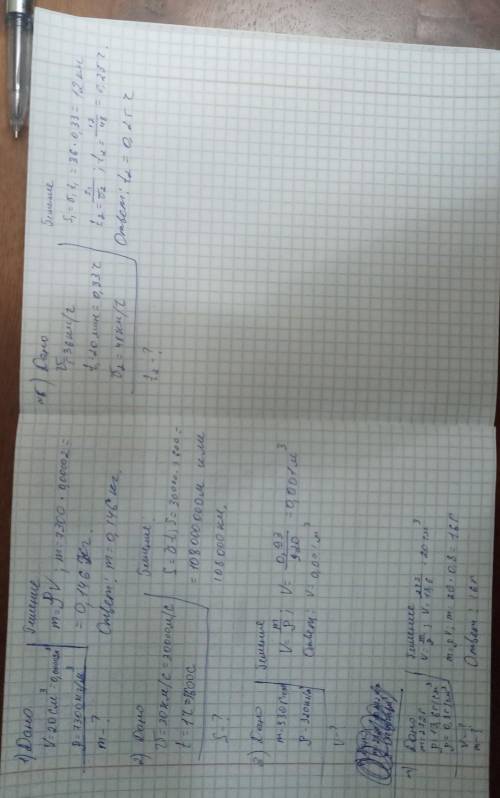 1) Дано
V=20см³ 0,00002м³
ρ=7300кг/м³
m-?
Решение
m=ρV; m=7300·0,00002=
=0,146кг.
Ответ: m=0,146кг.
2) Дано
V=30км/с=30000м/с
t=1ч=3600с
S-?
Решение
S=V·t; S=30000·3600=
=108000000м или
108000км.
3) Дано
ρ=920кг/м³
V-?
Решение
V=m/ρ; V=0,93/920=0,001м³
Ответ: V=0,001м³
4) Дано
m=272г
ρ=13,6г/см³
ρ=0,8г/см³
V-?
m-?
Решение
V=m/ρ; V=272/13,6=20см³
m=ρV; m=20·0,8=16г
Ответ: 16г
5) Дано
V₁=36км/ч
t₁=20мин=0,33ч
V₂=48км/ч
t₂-?
Решение
S₁=V₁t₁=36·0,33=12км
t₂=S₁/V₂; t₂=12/48=0,25ч.
Ответ: t₂=0,25ч